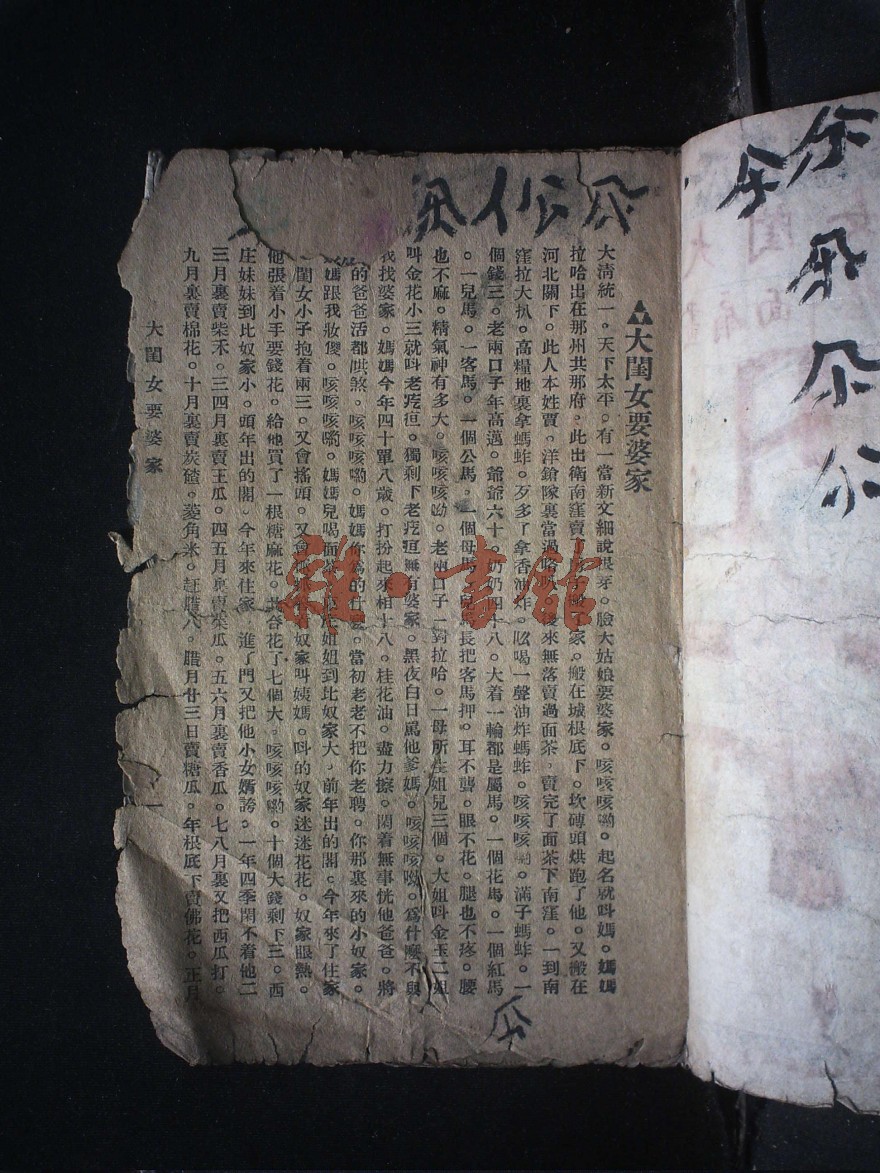 大闺女要婆家
大清統一。天下太平。有一當新文細說根芽。臉大姑娘要婆家。咳咳咳嘞。起名就呌媽。媽媽
拉哈出在那州共那府。此出衛南窪賣 家。搬在城根底下。坎磚頭烘跑了他。又搬在
河北關下。此人本姓賈。洋鎗隊裏當過 後來無落賣過面茶。賣完了面茶下南窪。一到南
窪拉大扒。高糧地裏拿螞蚱。歹多了拿香油炸。吆喝一聲油炸螞蚱。咳咳咳嘞。滿子螞蚱。一
個錢三。老兩口子年高邁。爺爺六十。奶奶四十八。大着一輪都是屬馬。一個花馬。一個紅馬
。一兒馬。一客馬。一個公馬。一個母馬。兒馬長把客馬押。耳不聾。眼不花。腿也不疼。腰
也不麻。精氣神有多大。咳咳咳呦。老兩口子一對拉哈。一母所生姐兒三個。大姐呌金玉二姐
呌金花小三就呌老疙疸。獨剩下老疙疸無有婆家。黑夜白日罵他爹媽。咳咳咳呦。爲什麽不與
我找婆家。媽媽今年四十單八歲。打扮起來相十八。桂花油。盡力擦。閑着無事恍他爸爸。將
的爸爸活都烘煞。咳咳咳嘞。媽媽你爲的什麽。當初老老不把你老聘。你那裏來的小奴家。
媽跟我妝傻。咳咳咳嘞。媽媽兒喝面茶。 姐姐到比奴家大。前年出的閣。今年來了住家
閨女小子抱着兩三。又會搖頭。又會 奴家呌姨媽。呌的奴家迷迷花花。奴家眼熱。
他張着小手要錢花。給他買了一根糖麻花。共合花了七個大。咳咳咳嘞。十個大錢剩下三。西
庄妹妹到比奴家小。頭年出的閣。今年來住家。進了門又把他小女婿誇。一年四季閑不着他二
三月裏賣柴禾。三四月裏賣王瓜。四五月裏賣菜瓜。五六月裏賣香瓜。七八月裏又把西瓜打。
九月裏賣棉花。十月裏賣炭碴。菱角米。赶腊八。腊月廿三日賣糖瓜。年根底下賣佛花。正月
大闺女要婆家
一
雜·書館